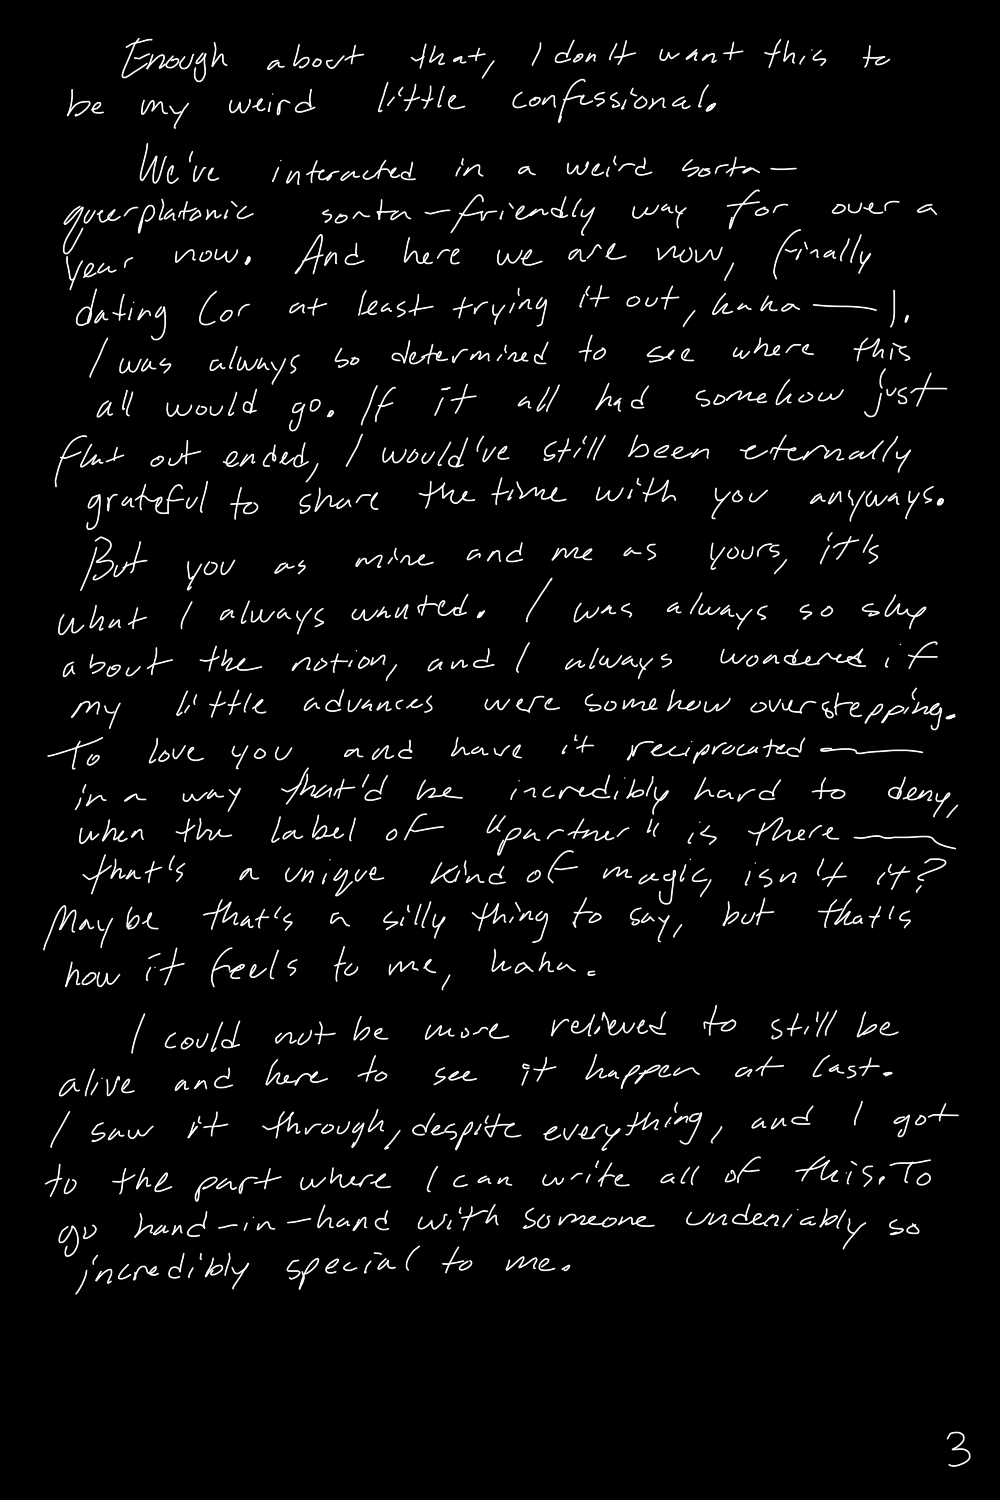 Enough about that, I don't want this to
be my weird little confessional.
We've interacted in a weird sorta-
queerplatonic sorta-friendly way for over a
year now. And here we are now, finally
dating (or at least trying it out, haha—).
I was always so determined to see where this
all would go. If it all had somehow just
flat out ended, I would've still been eternally
grateful to share the time with you anyways.
But you as mine and me as yours, it's
what I always wanted. I was always so shy
about the notion, and I always wondered if
my little advances were somehow overstepping.
To love you and have it reciprocated —
in a way that'd be incredibly hard to deny,
when the label of "partner" is there —
that's a unique kind of magic, isn't it?
Maybe that's a silly thing to say, but that's
how it feels to me, haha.
I could not be more relieved to still be
alive and here to see it happen at last.
I saw it through, despite everything, and I got
to the part where I can write all of this. To
go hand-in-hand with someone undeniably so
incredibly special to me.
3